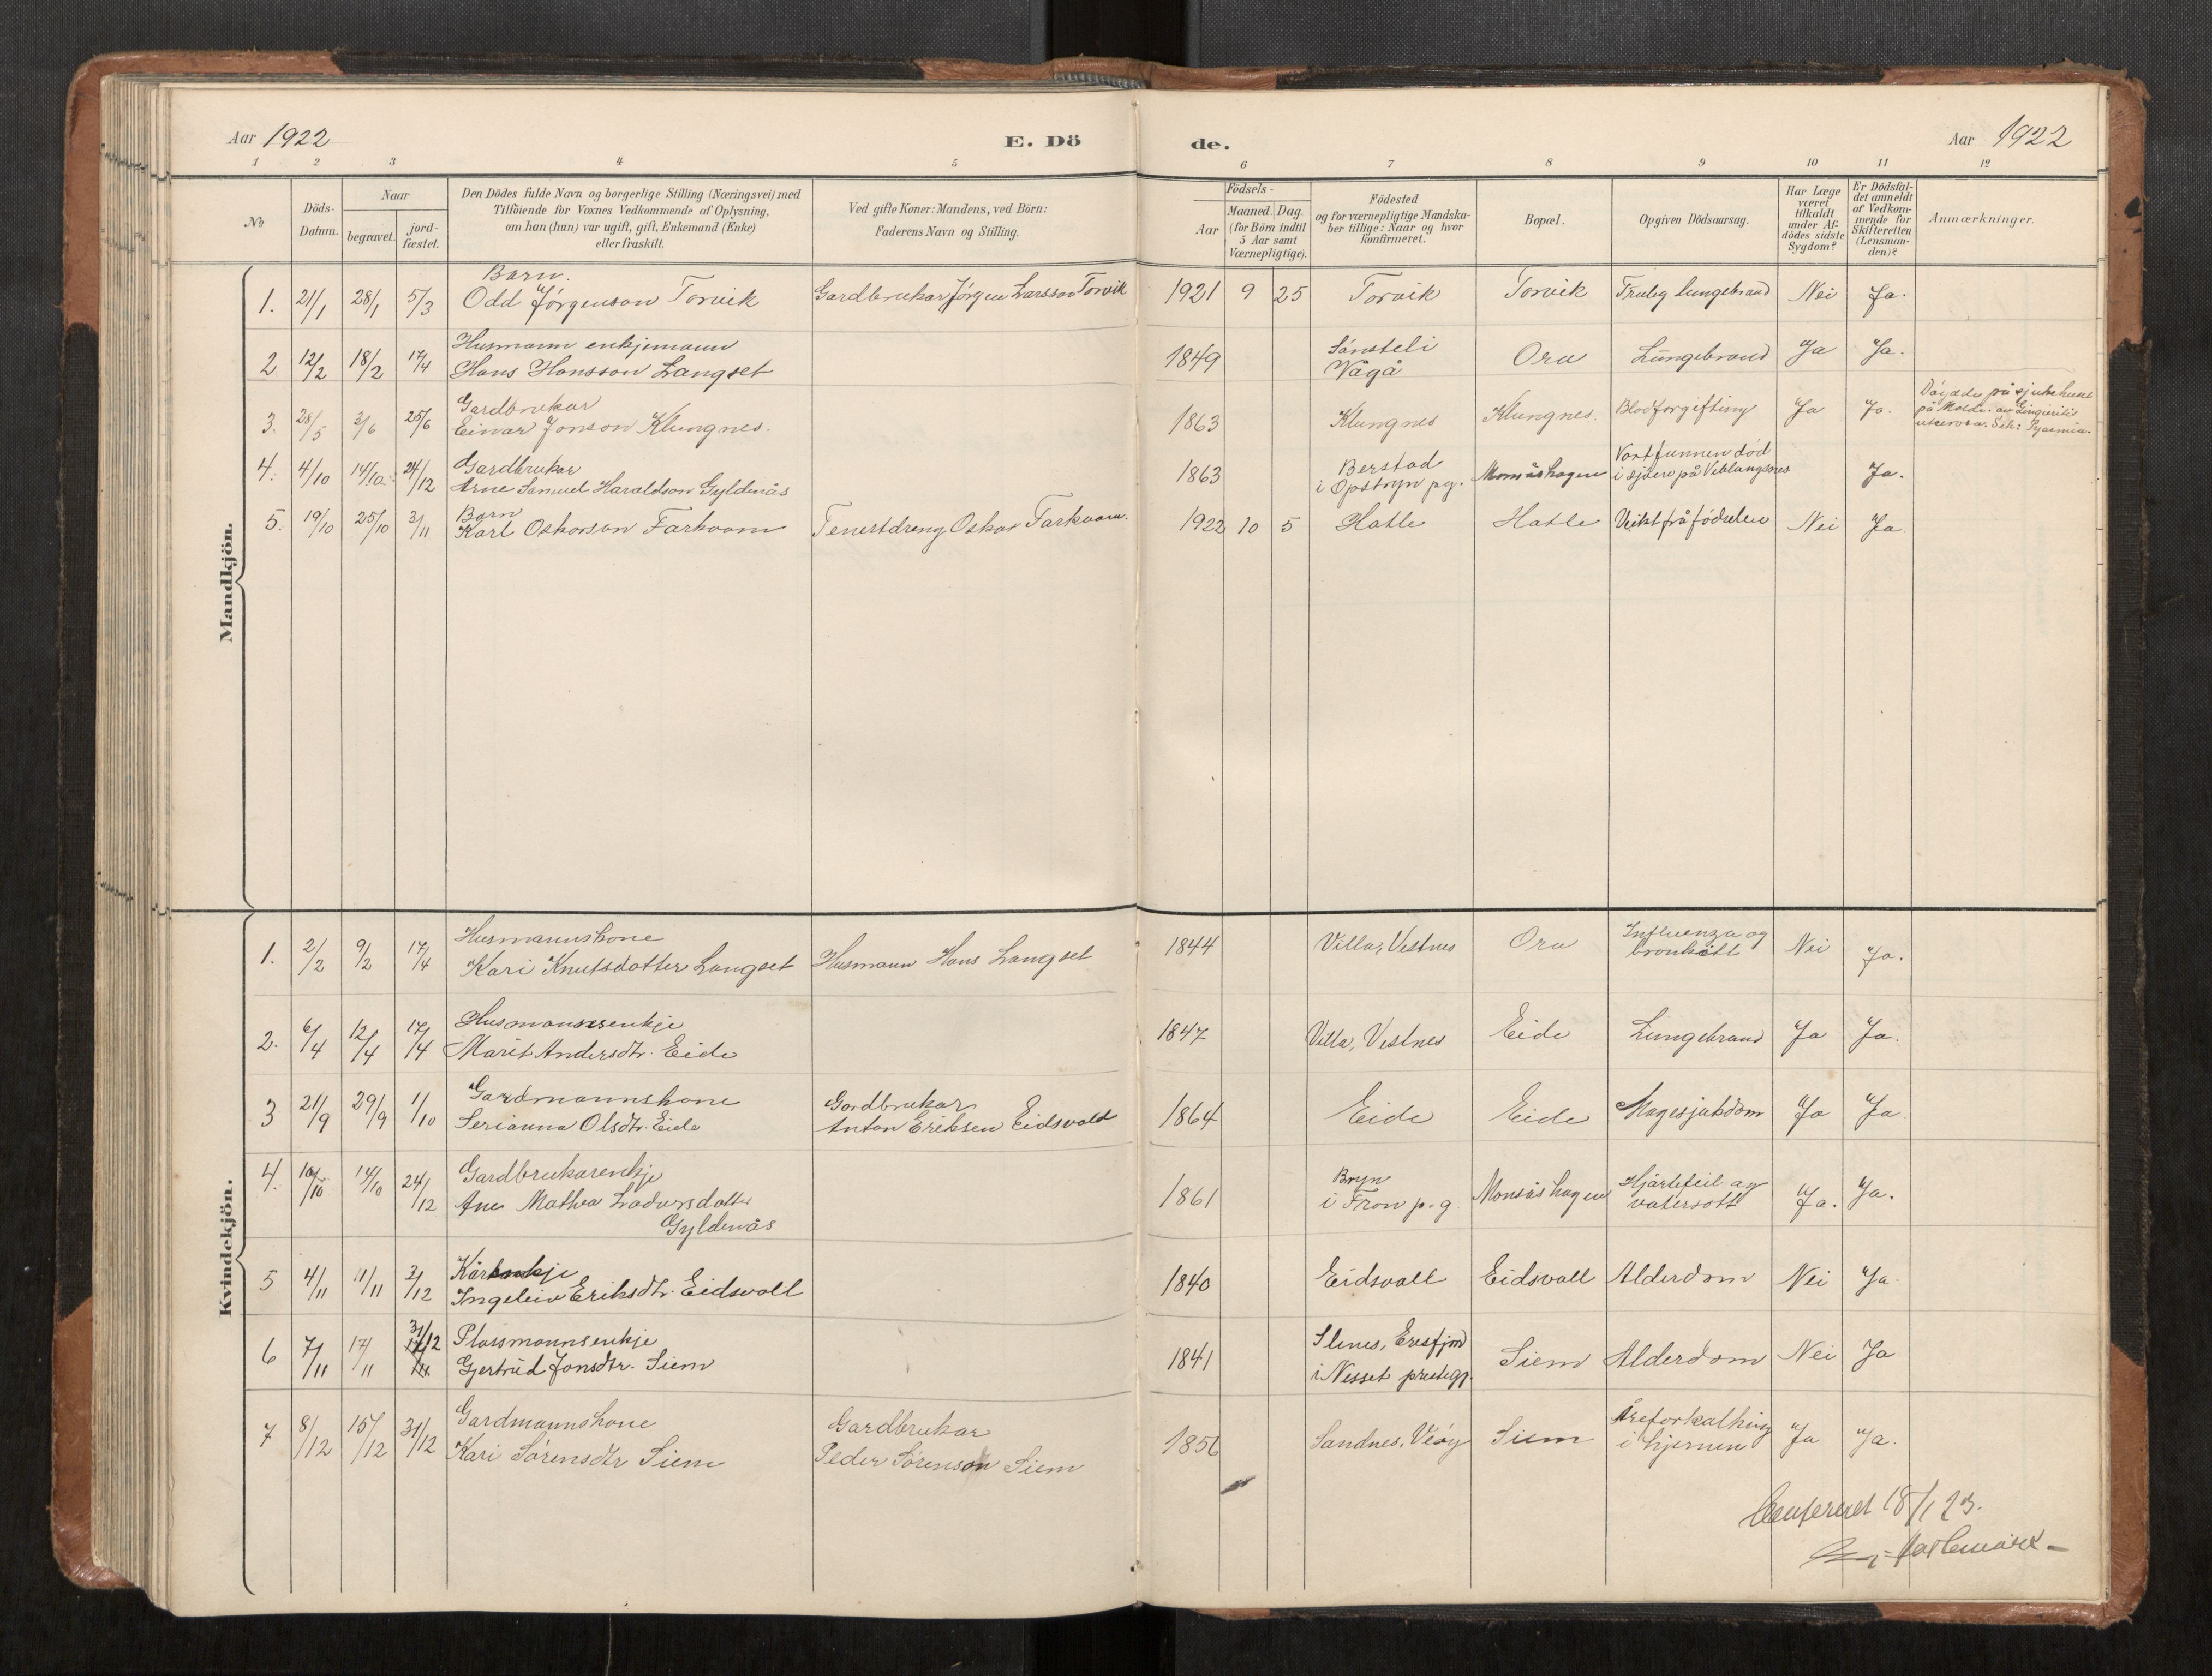 Aar 1922
E. Dö
de.
Aar 1922
1 2 3 4 5 6 7 8 9 10 11 12
No.
Döds-
Datum.
Naar
begravet.
jord-
fæstet.
Den Dödes fulde Navn og borgerlige Stilling (Næringsvei) med
Tilföiende for Voxnes Vedkommende af Oplysning,
om han (hun) var ugift, gift, Enkemand (Enke)
eller fraskilt.
Ved gifte Koner: Mandens, ved Börn:
Faderens Navn og Stilling.
Födsels-
Aar
Maaned. Dag.
(for Börn indtil
5 Aar samt
Værnepligtige).
Födested
og for værnepligtige Mandska-
ber tillige: Naar og hvor
konfirmeret.
Bopæl.
Opgiven Dödsaarsag.
Har Læge
været
tilkaldt
under Af-
dödes sidste
Sygdom?
Er Dödsfal-
det anmeldt
af Vedkom-
mende for
Skifteretten
(Lensman-
den)?
Anmærkninger.
Mandkjön.
Barn.
1. 21/1 28/1 5/3 Odd Jörgenson Torvik Gardbrukar Jörgen Larsson Torvik 1921 9 25 Torvik Torvik Truleg lungebrand Nei Ja.
Husmann enkjemann
2 12/2 18/2 17/4 Hans Hansson Langset 1849 Sönsteli
Vågå Ora Lungebrand Ja Ja.
Gardbrukar
3. 28/5 3/6 25/6 Einar Jonson Klungnes. 1863 Klungnes Klungnes. Blodforgifting Ja Ja.
Döydde på sjukehuset
på Molde. av
Gardbrukar
4. 4/10 14/10 24/12 Arne Samuel Haraldson Gyldenås 1863 Berstad
i Opstryn pg. Monsåshagen Vart funnen död
i sjöen på Veblungsnes Ja.
Barn
5. 19/10 25/10 3/11 Karl Oskarson Farkvam Tenestdreng Oskar Farkvam. 1922 10 5 Hatle Hatle Veikt frå födselen Nei Ja.
Kvindekjön.
Husmannskone
1. 2/2 9/2 17/4 Kari Knutsdotter Langset Husmann Hans Langset 1844 Villa, Vestnes Ora Influenza og
bronkitt Nei Ja.
Husmannsenkje
2. 6/4 12/4 17/4 Marit Andersdtr. Eide 1847 Villa, Vestnes Eide Lungebrand Ja Ja.
Gardmannskone
3 21/9 29/9 1/10 Serianna Olsdtr. Eide Gardbrukar
Anton Eriksen Eidsvold 1864 Eide Eide Magesjukdom Ja Ja.
Gardbrukarenkje
4. 10/10 14/10 24/12 Ane Mathea
Gyldenås 1861 Bryn
i Fron p.g. Monsåshagen Hjärtefeil og
vatersott Ja. Ja.
5 4/11 11/11 3/12 Kårenkje
Ingeleiv Eriksdtr. Eidsvoll 1840 Eidsvall Eidsvall Alderdom Nei Ja.
6 7/11 17/11 31/12 Plassmannsenkje
Gjertrud Jonsdtr. Siem 1841 Slenes, Eresfjord
i Nesset prestegj. Siem Alderdom Nei Ja
7 8/12 15/12 31/12 Gardmannskone
Kari Sörensdtr Siem Gardbrukar
Peder Sörenson Siem 1856 Sandnes, Veöy Siem Åreforkalking
i hjernen Ja Ja.
Confereret 18/1 23.